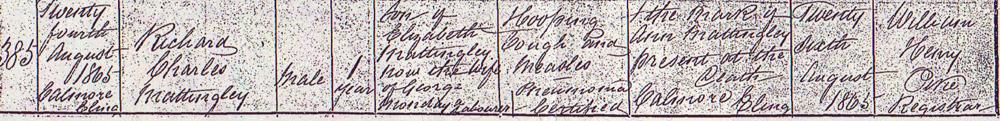 385
Twenty
fourth
August
1865
Calmore
Eling
Richard
Charles
Mattingley
Male
1
Year
Son of
Elizabeth
Mattingley
now the Wife
of George
Monday a Labourer
Hooping
Cough and
Measles
Pneumonia
Certified
X the Mark of
Ann Mattingley
Present at the
Death
Calmore Eling
Twenty
Sixth
August
1865
William
Henry
Registrar